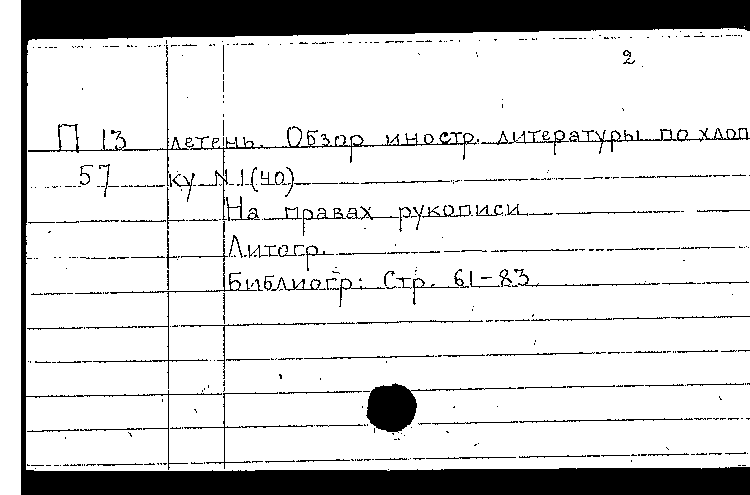 2
П 13 летень. Обзор иностр. литературы по хлоп
57 ку N 1(40)
На правах рукописи
Литогр.
Библиогр: Стр. 61-83